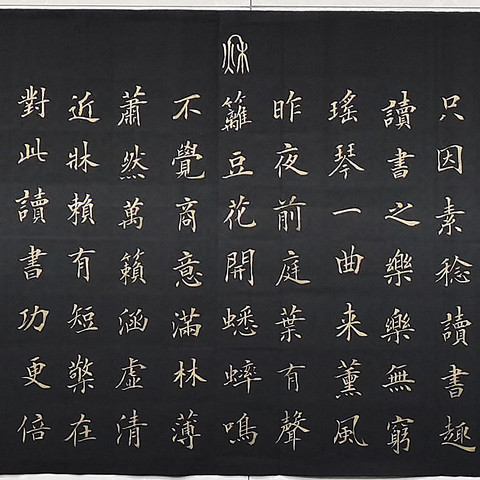 只因素稔讀書趣
讀書之樂樂無窮
瑤琴一曲来薰風
秋
昨夜前庭葉有聲
籬豆花開蟋蟀鳴
不覺商意滿林薄
蕭然萬籟涵虛清
近牀賴有短檠在
對此讀書功更倍